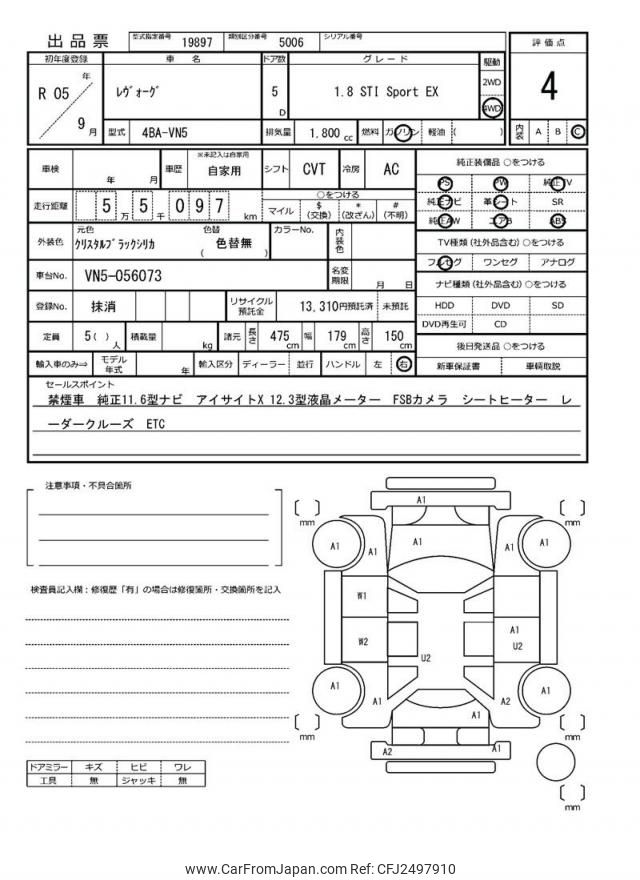 出品票 型式指定番号 19897 類別区分番号 5006 シリアル番号
初年度登録 車名 ドア数 グレード 駆動 評価点
R 05 年 9 月 ﾚｳﾞｫｰｸﾞ 5 D 1.8 STI Sport EX 2WD 4WD 4
型式 4BA-VN5 排気量 1,800 cc 燃料 ガソリン 軽油 ( ) 内装 A B C
車検 年 月 車歴 ※未記入は自家用 自家用 シフト CVT 冷房 AC
走行距離 5 万 5 千 0 9 7 km ○をつける
マイル $(交換) *(改ざん) #(不明)
外装色 元色 ｸﾘｽﾀﾙﾌﾞﾗｯｸｼﾘｶ 色替 ( 色替無 ) カラーNo. 内装色
車台No. VN5-056073 名変期限 月 日
登録No. 抹消 リサイクル預託金 13,310円預託済 未預託
定員 5( )人 積載量 kg 諸元 長さ 475cm 幅 179cm 高さ 150cm
輸入車のみ⇒ モデル年式 年 輸入区分 ディーラー 並行 ハンドル 左 右
純正装備品 ○をつける
PS PW 純正TV
純正ナビ 革シート SR
純正AW エアB ABS
TV種類(社外品含む)○をつける
フルセグ ワンセグ アナログ
ナビ種類(社外品含む)○をつける
HDD DVD SD
DVD再生可 CD
後日発送品 ○をつける
新車保証書 車輌取説
セールスポイント
禁煙車 純正11.6型ナビ アイサイトX 12.3型液晶メーター FSBカメラ シートヒーター レ
ーダークルーズ ETC
注意事項・不具合箇所
検査員記入欄：修復歴「有」の場合は修復箇所・交換箇所を記入
ドアミラー キズ ヒビ ワレ
工具 無 ジャッキ 無
A1
mm mm
A1 A1 A1 A1 A1
W1
W2 U2 A1 U2
A1 A1 A1 A2 A1
mm mm
A2 A1
mm
www.CarFromJapan.com Ref: CFJ2497910